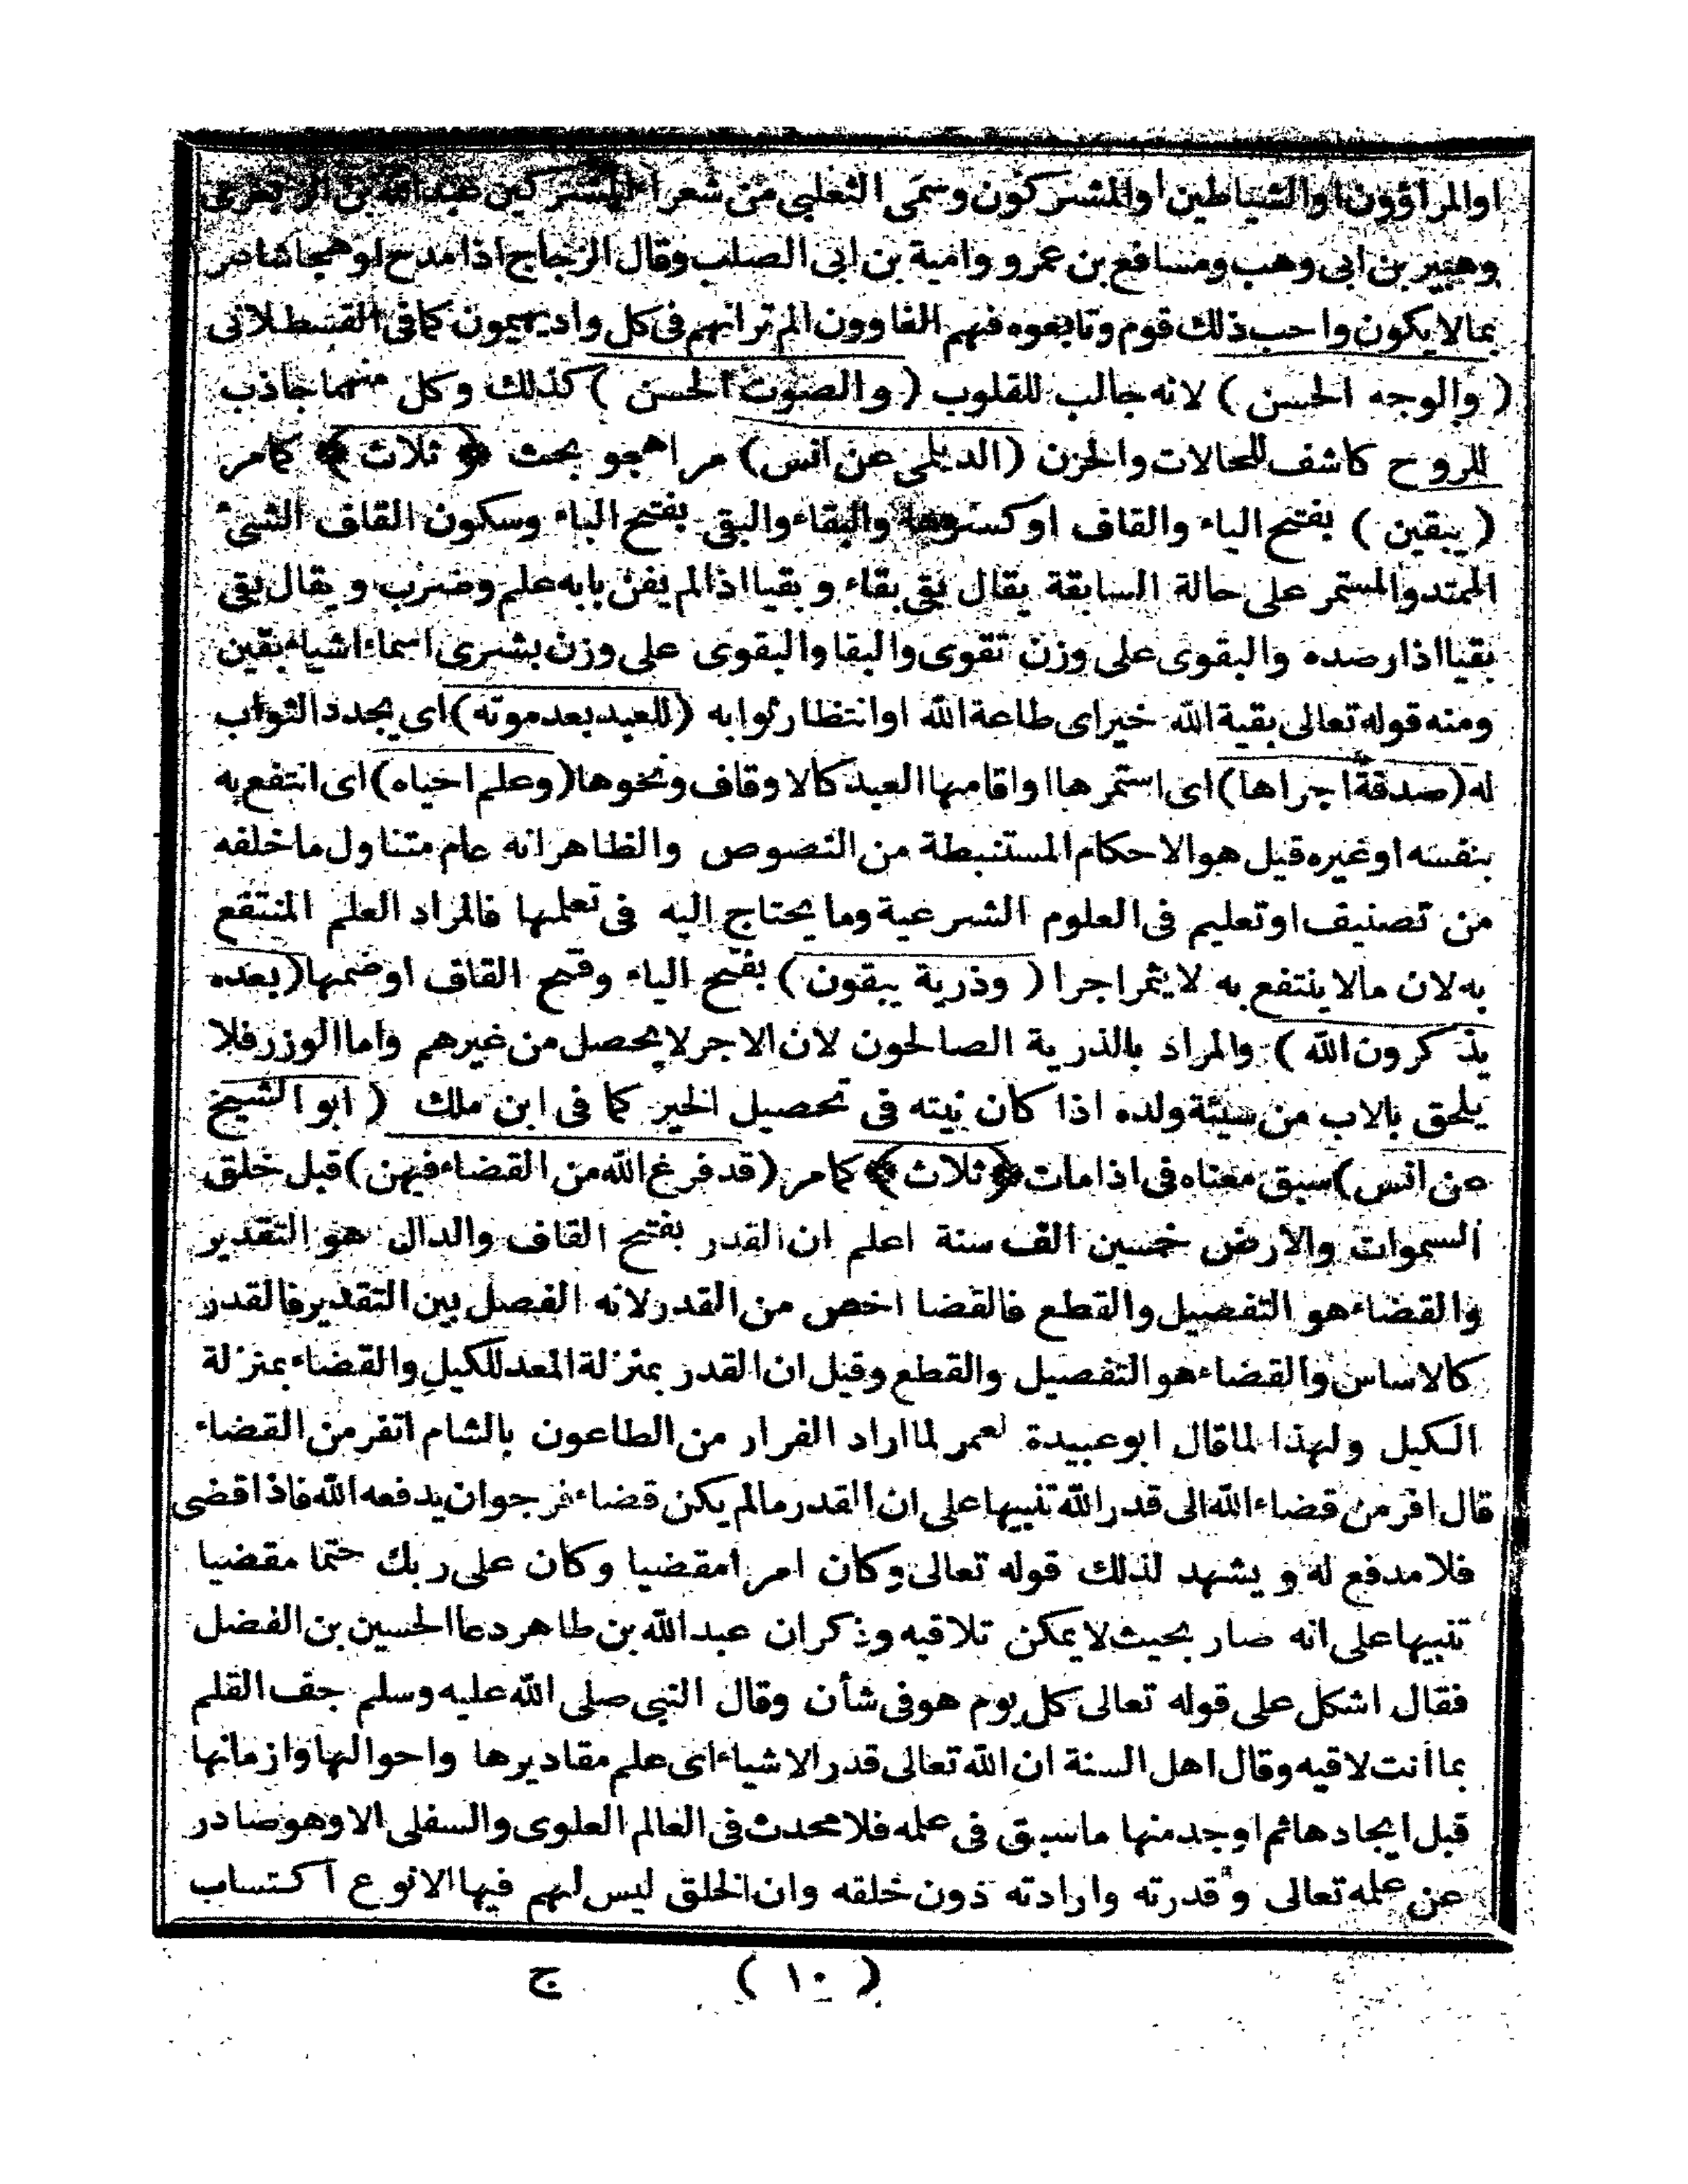 اوالمراؤون اوالشياطين اوالمشركون وسمى الثعلبي من شعراء المشركين عبدالله بن الزبعرى
وهبير بن ابى وهب ومسافع بن عمرو وامية بن ابى الصلب وقال الزجاج اذا مدح اوهجا شاعر
بمالايكون واحب ذلك قوم وتابعوه فهم الغاوون الم ترانهم فى كل واديهيمون كمافى القسطلانى
(والوجه الحسن) لانه جالب للقلوب (والصوت الحسن) كذلك وكل منهما جاذب
للروح كاشف للحالات والحزن (الديلمى عن انس) مر اهجو بحث ﴿ثلاث﴾ كمامر
(يبقين) بفتح الياء والقاف اوكسرها والبقاء والبقى بفتح الباء وسكون القاف الشئ
الممتد والمستمر على حالة السابقة يقال بقى بقاء و بقيا اذالم يفن بابه علم وضرب و يقال بقى
بقيا اذارصده والبقوى على وزن تقوى والبقا والبقوى على وزن بشرى اسماء اشياء بقين
ومنه قوله تعالى بقية الله خير اى طاعة الله اوانتظار ثوابه (للعبد بعدموته) اى يجدد الثواب
له (صدقة اجراها) اى استمرها اواقامها العبد كالاوقاف ونحوها (وعلم احياه) اى انتفع به
بنفسه اوغيره قيل هو الاحكام المستنبطة من النصوص والظاهر انه عام متناول ماخلفه
من تصنيف اوتعليم فى العلوم الشرعية ومايحتاج اليه فى تعلمها فالمراد العلم المنتفع
به لان مالاينتفع به لايثمر اجرا (وذرية يبقون) بفتح الياء وفتح القاف اوضمها (بعده
يذكرون الله) والمراد بالذرية الصالحون لان الاجر لايحصل من غيرهم واما الوزر فلا
يلحق بالاب من سيئة ولده اذا كان نيته فى تحصيل الخير كما فى ابن ملك (ابوالشيخ
عن انس) سبق معناه فى اذامات ﴿ثلاث﴾ كمامر (قدفرغ الله من القضاء فيهن) قبل خلق
السموات والارض خمسين الف سنة اعلم ان القدر بفتح القاف والدال هو التقدير
والقضاء هو التفصيل والقطع فالقضا اخص من القدر لانه الفصل بين التقدير فالقدر
كالاساس والقضاء هو التفصيل والقطع وقيل ان القدر بمنزلة المعد للكيل والقضاء بمنزلة
الكيل ولهذا لماقال ابوعبيدة لعمر لما اراد الفرار من الطاعون بالشام اتفر من القضاء
قال افر من قضاء الله الى قدر الله تنبيها على ان القدر مالم يكن قضاء فرجوان يدفعه الله فاذا قضى
فلا مدفع له و يشهد لذلك قوله تعالى وكان امرا مقضيا وكان على ربك حتما مقضيا
تنبيها على انه صار بحيث لايمكن تلاقيه وذكر ان عبدالله بن طاهر دعا الحسين بن الفضل
فقال اشكل على قوله تعالى كل يوم هو فى شأن وقال النبى صلى الله عليه وسلم جف القلم
بما انت لاقيه وقال اهل السنة ان الله تعالى قدر الاشياء اى علم مقاديرها واحوالها وازمانها
قبل ايجادها ثم اوجد منها ماسبق فى علمه فلا محدث فى العالم العلوى والسفلى الا وهو صادر
عن علمه تعالى و قدرته وارادته دون خلقه وان الخلق ليس لهم فيها الانوع اكتساب
(١٠) ج